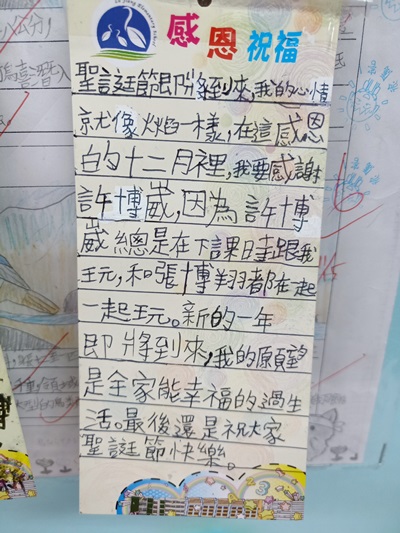 感恩祝福
聖誕節即將到來,我的心情
就像火焰一樣,在這感恩
的十二月裡,我要感謝
許博崴,因為許博
崴總是在下課時跟我
玩,和張博翔都在一起
一起玩。新的一年
即將到來,我的願望
是全家能幸福的過生
活。最後還是祝大家
聖誕節快樂。